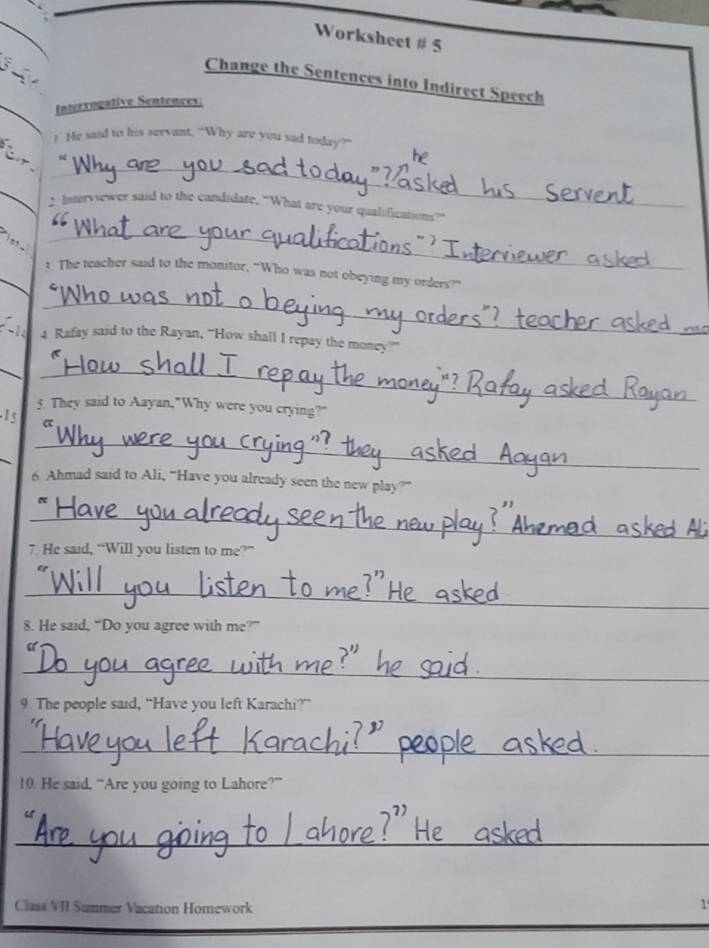 Worksheet # 5
Change the Sentences into Indirect Speech
Interrogative Sentences:
1 He said to his servant, "Why are you sad today?"
he
"Why are you sad today"?/asked his servent
2. Interviewer said to the candidate, "What are your qualifications?"
"What are your qualifications"? Interviewer asked
3. The teacher said to the monitor, "Who was not obeying my orders?"
"Who was not obeying my orders"? teacher asked
4. Rafay said to the Rayan, "How shall I repay the money?"
"How shall I repay the money"? Rafay asked Rayan
5. They said to Aayan,"Why were you crying?"
"Why were you crying"? they asked Aayan
6. Ahmad said to Ali, "Have you already seen the new play?"
"Have you already seen the new play?" Ahemad asked Ali
7. He said, "Will you listen to me?"
"Will you listen to me?" He asked
8. He said, "Do you agree with me?"
"Do you agree with me?" he said.
9. The people said, "Have you left Karachi?"
"Have you left Karachi?" people asked.
10. He said, "Are you going to Lahore?"
"Are you going to Lahore?" He asked
Class VII Summer Vacation Homework